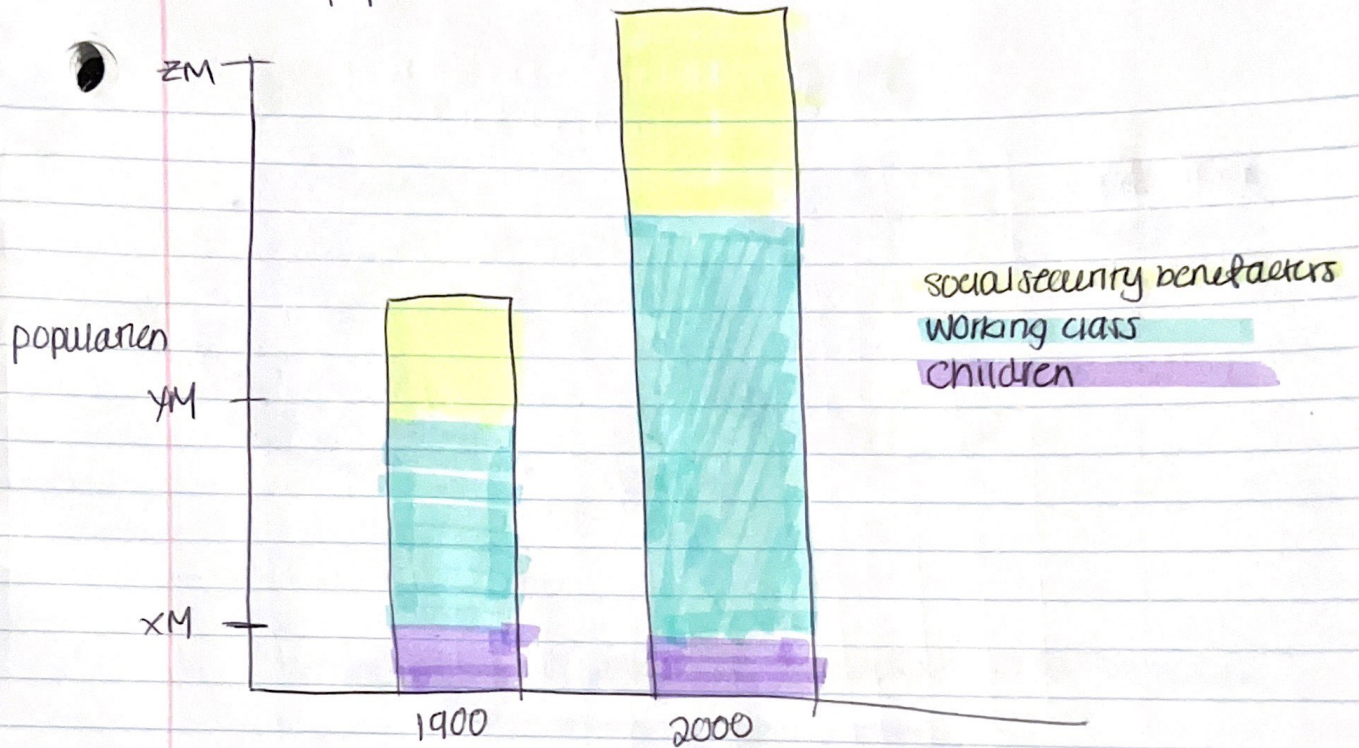 ZM
population
YM
XM
1900
2000
social security benefactors
working class
Children